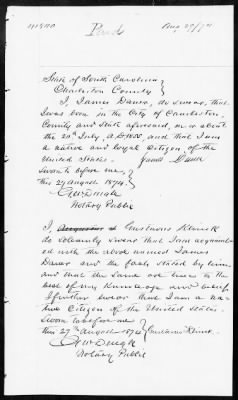 Paid
Aug 29/74
State of South Carolina
Charleston County
I, James Dauer, do swear, that
I was born in the City of Charleston,
County and State aforesaid, on or about
the 20th July A.D. 1850, and that I am
a native and loyal citizen of the
United States.
Sworn to before me
this 27 August 1874.
Notary Public
I, Gustavus Klenck
do solemnly swear that I am acquaint
ed with the above named James
Dauer and the facts stated by him
and that the same are true to the
best of my knowledge and belief.
I further swear that I am a na
tive Citizen of the United States.
Sworn to before me
this 27th August 1874
Notary Public